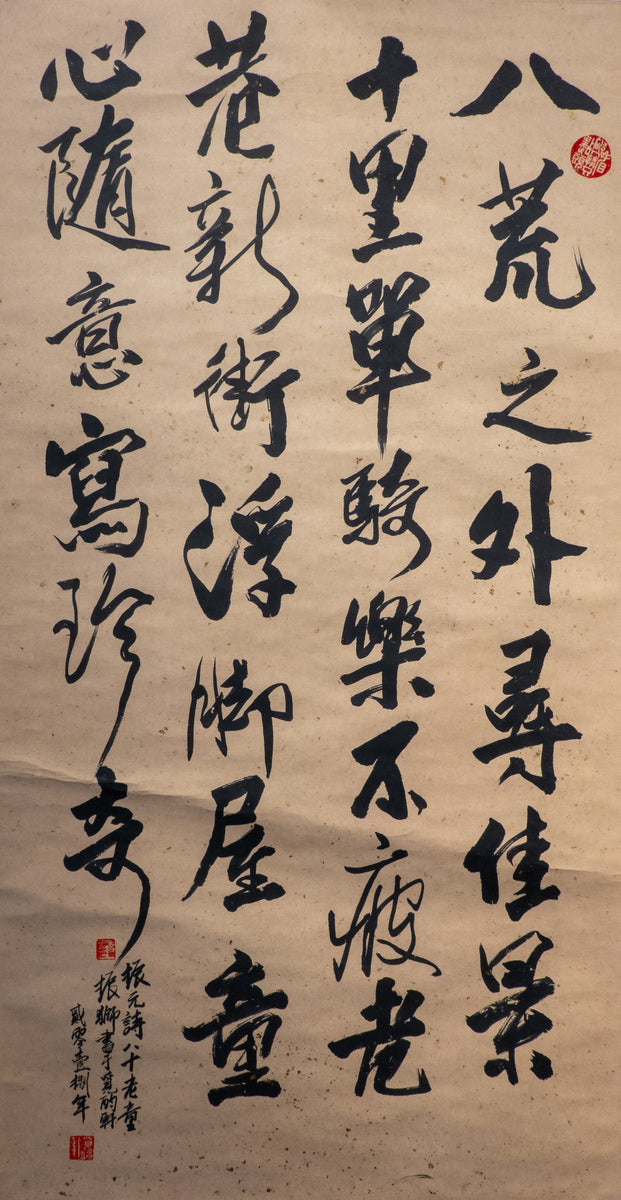 八荒之外尋佳景
十里單騎樂不疲老
巷新街浮脚屋童
心隨意寫珍奇
振元詩八十老童
振獅書于覓韵軒
贰零壹捌年